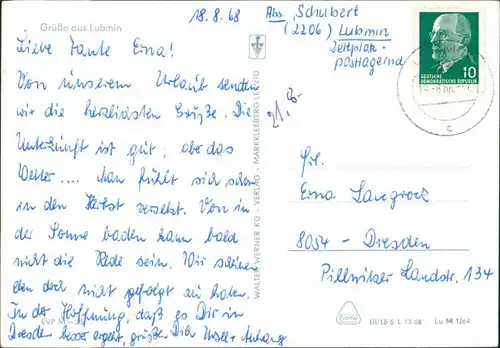 Grüße aus Lubmin
18.8.68
Abs. Schubert
(2206) Lubmin
Zeltplatz
postlagernd
10
DEUTSCHE
DEMOKRATISCHE REPUBLIK
Liebe Tante Erna!
Von unserem Urlaub senden
wir die herzlichsten Grüße. Die
Unterkunft ist gut, aber das
Wetter .... Man fühlt sich schon
in den Herbst versetzt. Von in
der Sonne baden kann bald
nicht die Rede sein. Wir scheinen
den doch nicht gepachtet zu haben.
In der Hoffnung, daß es Dir in
Dresden besser ergeht, grüßen Dich Ursel + Anhang.
21,8-
WALTER WERNER KG · VERLAG · MARKKLEEBERG LEIPZIG
Frl.
Erna
8054 - Dresden
Pillnitzer Landstr. 134
EVP M
III/18/6 L 13 68 Lu M 1/64